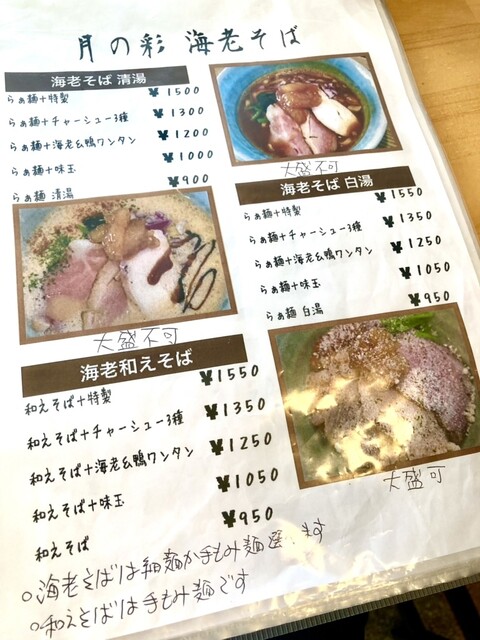 月の彩 海老そば
海老そば 清湯
らぁ麺+特製 ¥1500
らぁ麺+チャーシュー3種 ¥1300
らぁ麺+海老&鴨ワンタン ¥1200
らぁ麺+味玉 ¥1000
らぁ麺 清湯 ¥900
大盛不可
海老そば 白湯
らぁ麺+特製 ¥1550
らぁ麺+チャーシュー3種 ¥1350
らぁ麺+海老&鴨ワンタン ¥1250
らぁ麺+味玉 ¥1050
らぁ麺 白湯 ¥950
大盛不可
海老和えそば
和えそば+特製 ¥1550
和えそば+チャーシュー3種 ¥1350
和えそば+海老&鴨ワンタン ¥1250
和えそば+味玉 ¥1050
和えそば ¥950
大盛可
○海老そばは細麺か手もみ麺選べます
○和えそばは手もみ麺です